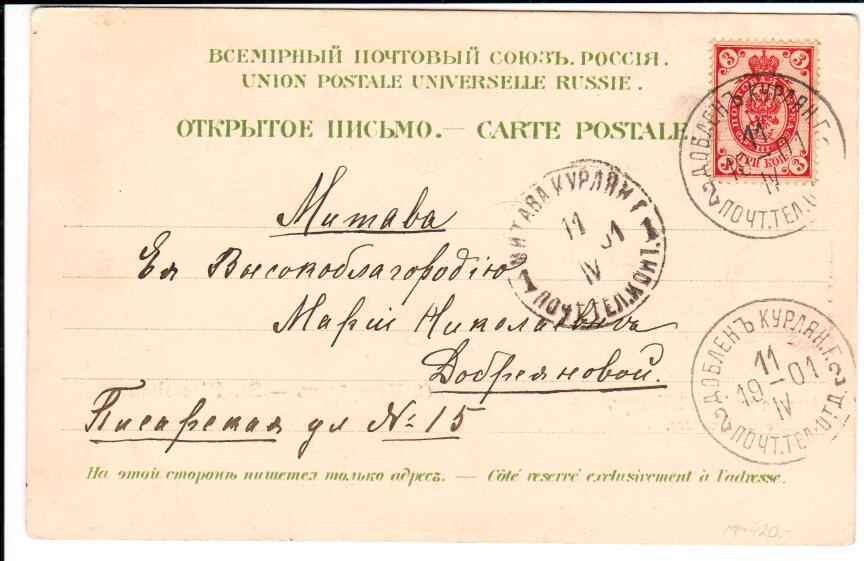 ВСЕМІРНЫЙ ПОЧТОВЫЙ СОЮЗЪ. РОССІЯ.
UNION POSTALE UNIVERSELLE RUSSIE.
ОТКРЫТОЕ ПИСЬМО.— CARTE POSTALE.
3 3
ПОЧТОВАЯ МАРКА
ТРИ КОП.
3 3
ДОБЛЕНЪ КУРЛЯН. Г.
11
19-01
IV
2 ПОЧТ.ТЕЛ.
МИТАВА КУРЛЯН. Г.
11
01
IV
1 ПОЧТ.ТЕЛ.КОНТ. 1
Митава
Ея Высокоблагородію
Маріи Николаевне
Добреяновой.
Писарская ул № 15
ДОБЛЕНЪ КУРЛЯН. Г.
11
19-01
IV
2 ПОЧТ.ТЕЛ.ОТД. 2
На этой сторонѣ пишется только адресъ. — Côté reservé exclusivement à l'adresse.